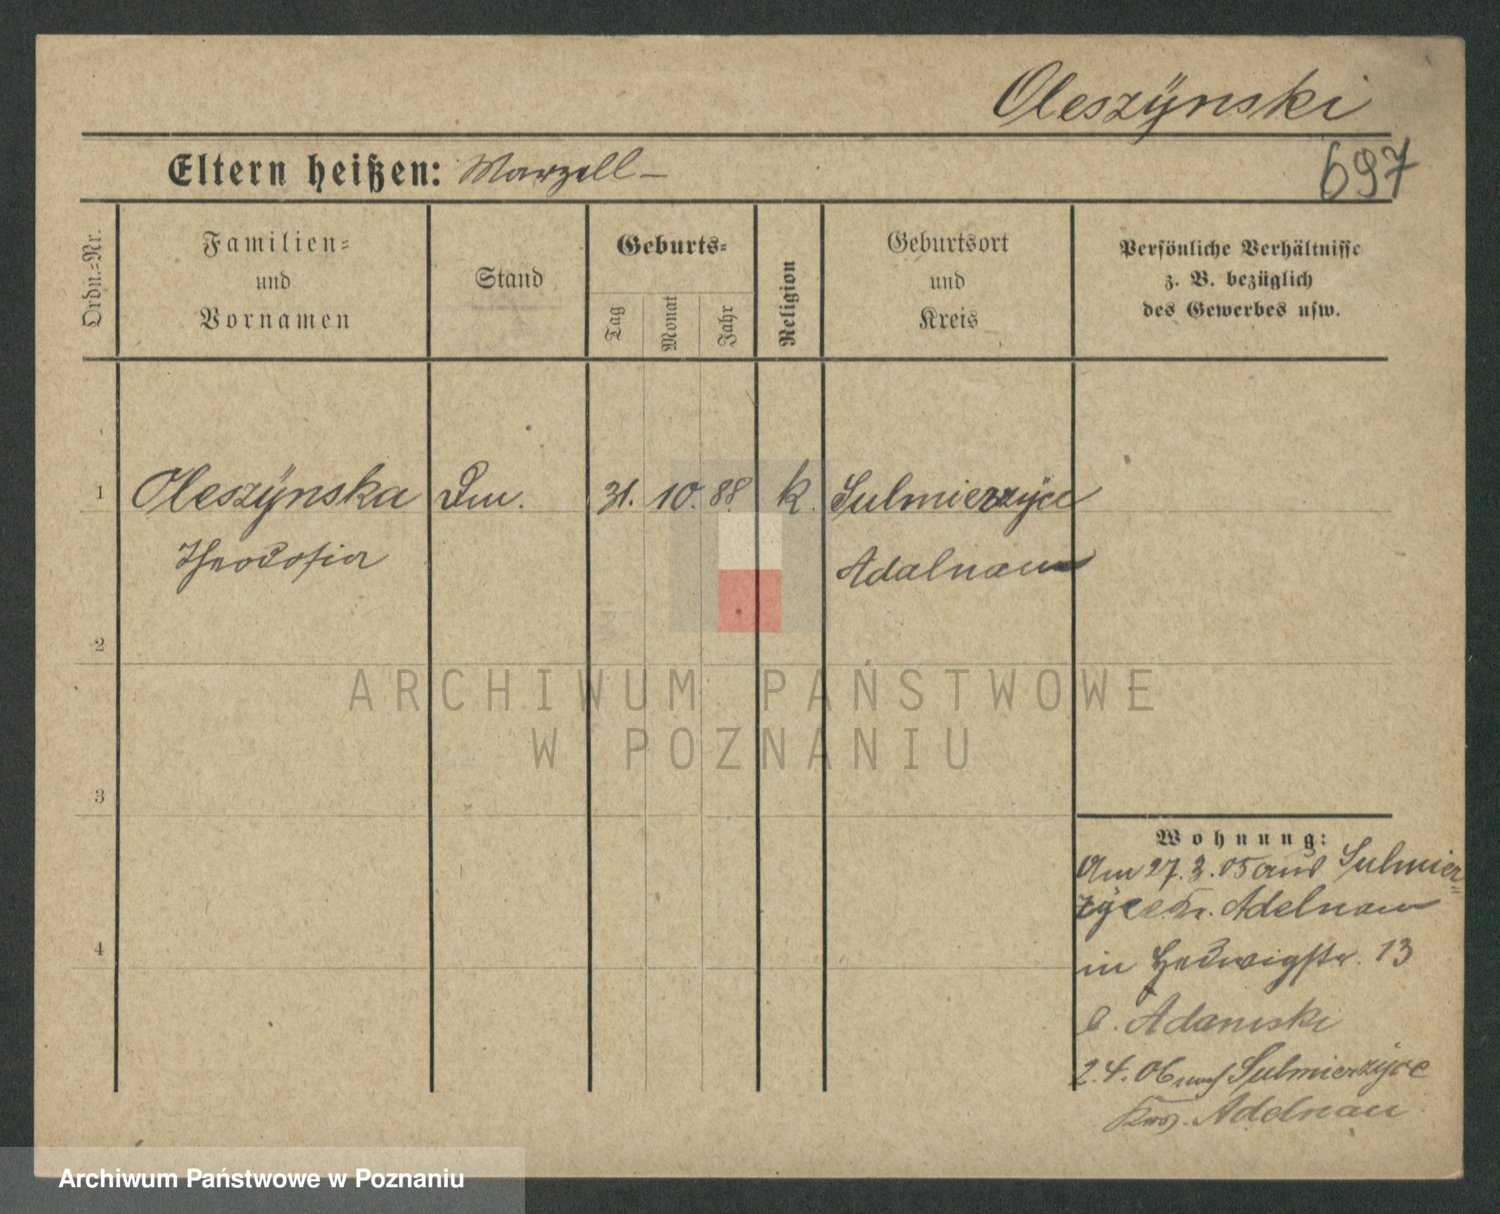 Oleszÿnski
697
Eltern heißen: Marzell –
Ordn.-Nr.
Familien-
und
Vornamen
Stand
Geburts-
Tag
Monat
Jahr
Religion
Geburtsort
und
Kreis
Persönliche Verhältnisse
z. B. bezüglich
des Gewerbes usw.
1 Oleszÿnska 31. 10. 88 k. Sulmierzÿce
Theodosia Adalnau
2
ARCHIWUM PAŃSTWOWE
W POZNANIU
3
Wohnung:
Am 27. 3. 05 aus Sulmier-
zÿce Kr. Adelnau
4
in Hedwigstr. 13
b. Adamski
2. 4. 06 nach Sulmierzÿce
Krs. Adelnau
Archiwum Państwowe w Poznaniu